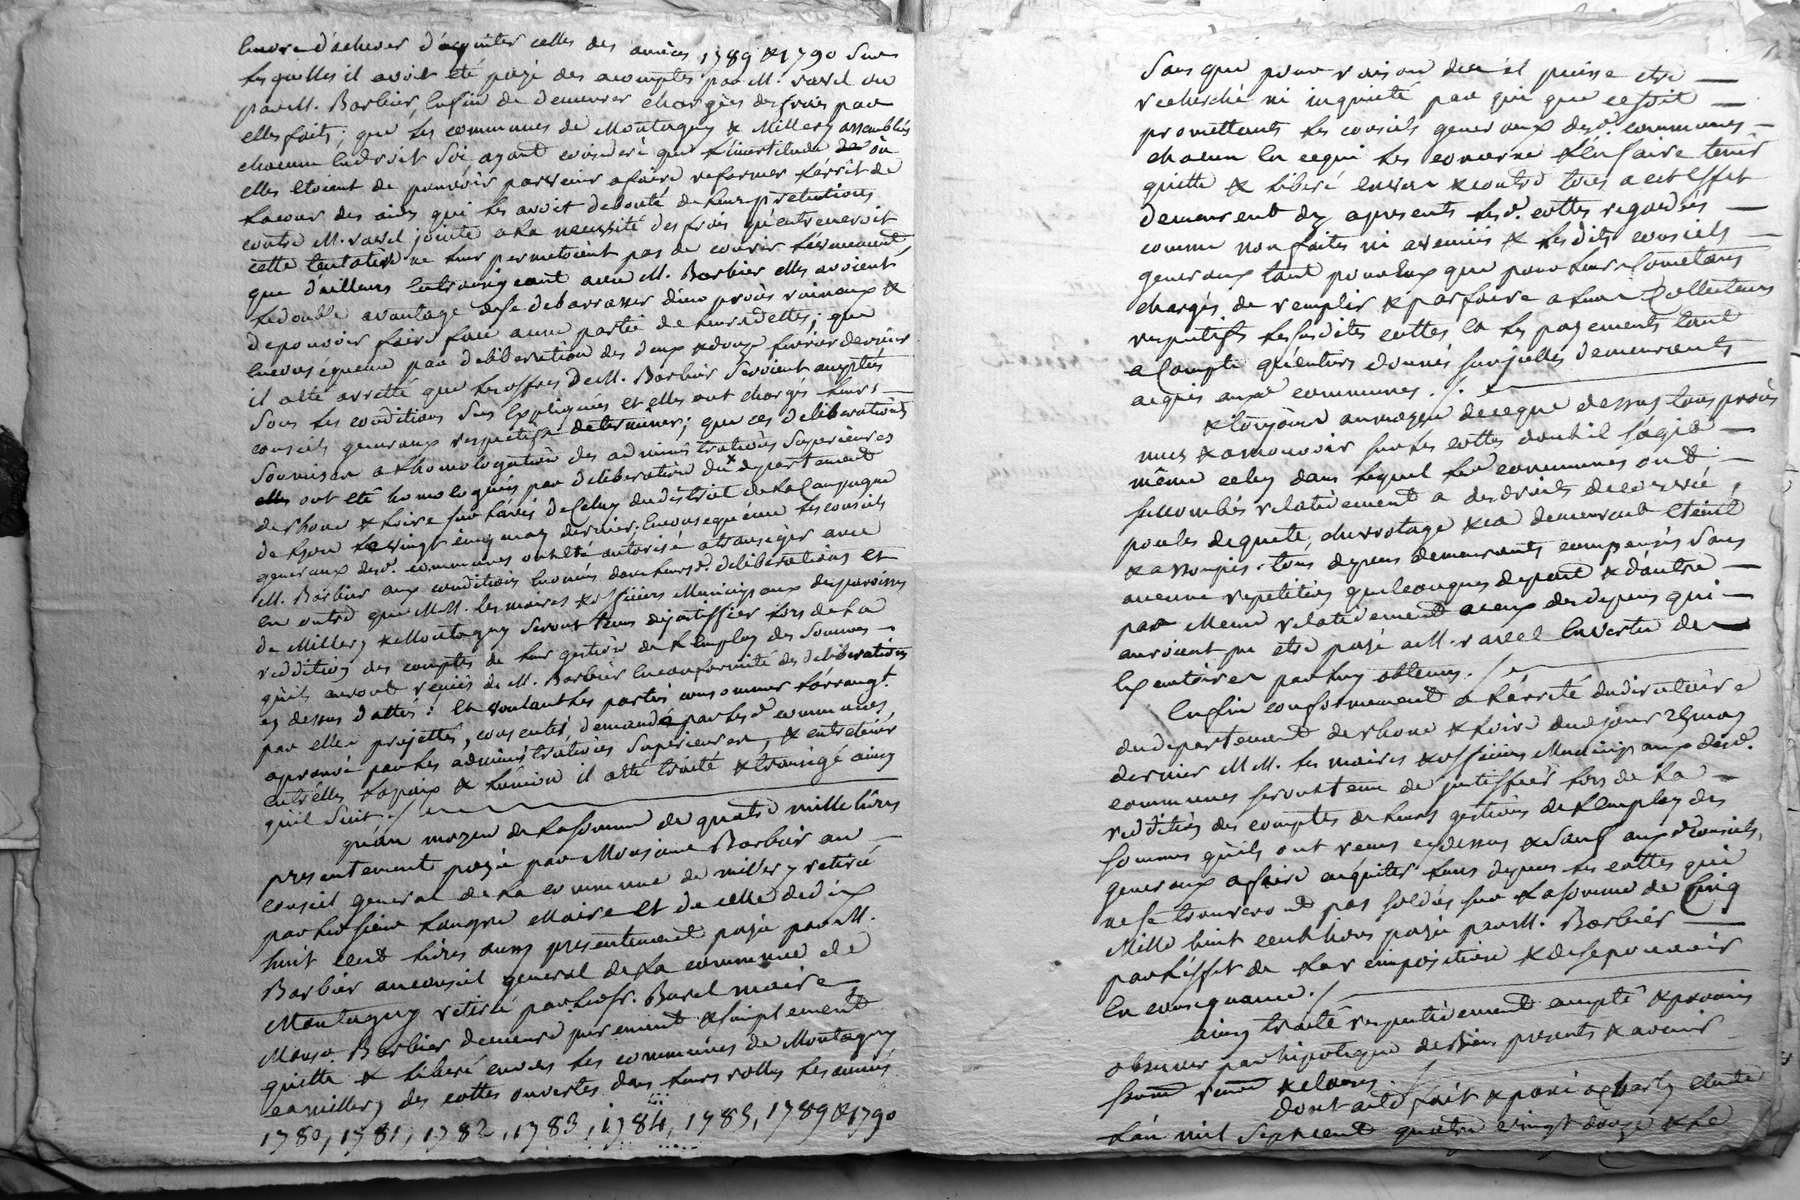 Encore d'achever d'acquiter celles des années 1789 & 1790 Sur
Les quelles il avoit été payé des acomptes par M. ravel ou
par M. Barbier, Enfin de demeurer chargées des frais par
elles faits; que Les communes de Montagny & Millery assemblés
chacune Endroit Soi, ayant consideré que L'incertitude où
elles etoient de pouvoir parvenir afaire reformer L'arrêt de
La cour des aides qui Les avoit debouté de Leurs pretentions
contre M. ravel jointe a La necessité des frais qu'entreneroit
cette tentative ne Leur permetoient pas de courir L'evenement,
que d'ailleurs En transigeant avec M. Barbier elles avoient
Le double avantage de se debarrasser d'un procès ruineux &
de pouvoir faire face a une partie de Leurs dettes; que
Enconséquence par déliberation des deux & douze fevrier dernier
il a été arretté que Les offres de M. Barbier Seroient acceptées
Sous Les conditions Sus Expliquées et elles ont chargés Leurs
conseils generaux respectifs determiner; que ces déliberations
Soumises a L'homologation des administrations Superieures
elles ont été homologuées par déliberation du departement
de rhone & Loire sur L'avis de Celuy du district de La Campagne
de Lyon Le vingt cinq may dernier. Enconsequence Les conseils
generaux desd. communes ont été autorisé a transiger avec
M. Barbier aux conditions Enoncées dans Leursd. déliberations et
en outre que MM. Les maires & officiers Municipaux des paroisses
de Millery & Montagny Seront tenus de justiffier Lors de La
reddition des comptes de Leur gestion de L'employ des Sommes
qu'ils auront reçues de M. Barbier Enconformité des déliberations
cy dessus dattés: Et voulant Les parties consommer L'arrangt.
par elles projettés, consentis, demandé par Lesd. communes,
aprouvé par Les administrations Superieures, & entretenir
entr'elles La paix & L'union il a été traité & transigé ainsy
qu'il Suit./.
qu'au moyen de La Somme de quatre mille Livres
presentement payée par Monsieur Barbier au
Conseil general de La commune de millery retirée
par Le Sieur Maire et de celle de dix
huit cent Livres aussy presentement payée par M.
Barbier au conseil general de La commune de
Montagny retirée par Le Sr. Burel maire,
Monsr. Barbier demeure purement & Simplement
quitte & Liberé envers Les communes de Montagny
et millery des cottes ouvertes dans Leurs rolles Les années
1780, 1781, 1782, 1783, 1784, 1785, 1789 & 1790
Sans que pour raison d'icel il puisse etre
recherché ni inquieté par qui que ce Soit
promettants Les conseils generaux desd. communes
chacun En ce qui Les concerne & L'en faire tenir
quitte & Liberé envers & contre tous a cet Effet
demeurent dez apresent Lesd. cottes regardées
comme non faites ni avenües & Lesdits conseils
generaux tant pour Eux que pour Leurs Comettans
chargés de remplir & parfaire a Leurs Collecteurs
respectifs Les Susdites cottes et Les payements tant
a Compte qu'entiers donnés Sur icelles demeurants
acquis auxd. communes./.
& toujours au moyen de ce que dessus tous procès
mus & a mouvoir Sur Les cottes dont il S'agit
même celuy dans Lequel Lesd. communes ont
succombés relativement a des droits de corvée,
poules de quete, charrotage & ca demeurent eteint
& assoupis. tous depens demeurants compensés Sans
aucune repetition quelconques de part & d'autre
par Meme relativement a ceux des depens qui
auroient pu etre payé a M. ravel En vertu de
Executoires par Luy obtenus./.
Enfin conformement a L'arrêté du directoire
du departement de rhone & Loire dud jour 25 may
dernier MM. Les maires & officiers Municipaux desd.
communes seront tenus de justiffier Lors de La
reddition des comptes de Leurs gestions de L'employ des
sommes qu'ils ont reçues cy dessus & Sauf auxd. Conseils
generaux afaire acquiter Leurs depens Les cottes qui
ne Se trouveront pas soldées sur La Somme de Cinq
Mille huit cent Livres payée par M. Barbier
par L'effet de Leur imposition & de se pourvoir
En consequence./.
ainsy traité respectivement accepté & promis
observer par hipoteque de Biens presents & avenir
& clauses.
dont acte fait & passé a Charly Etude
L'an mil Sept cent quatre vingt douze & Le